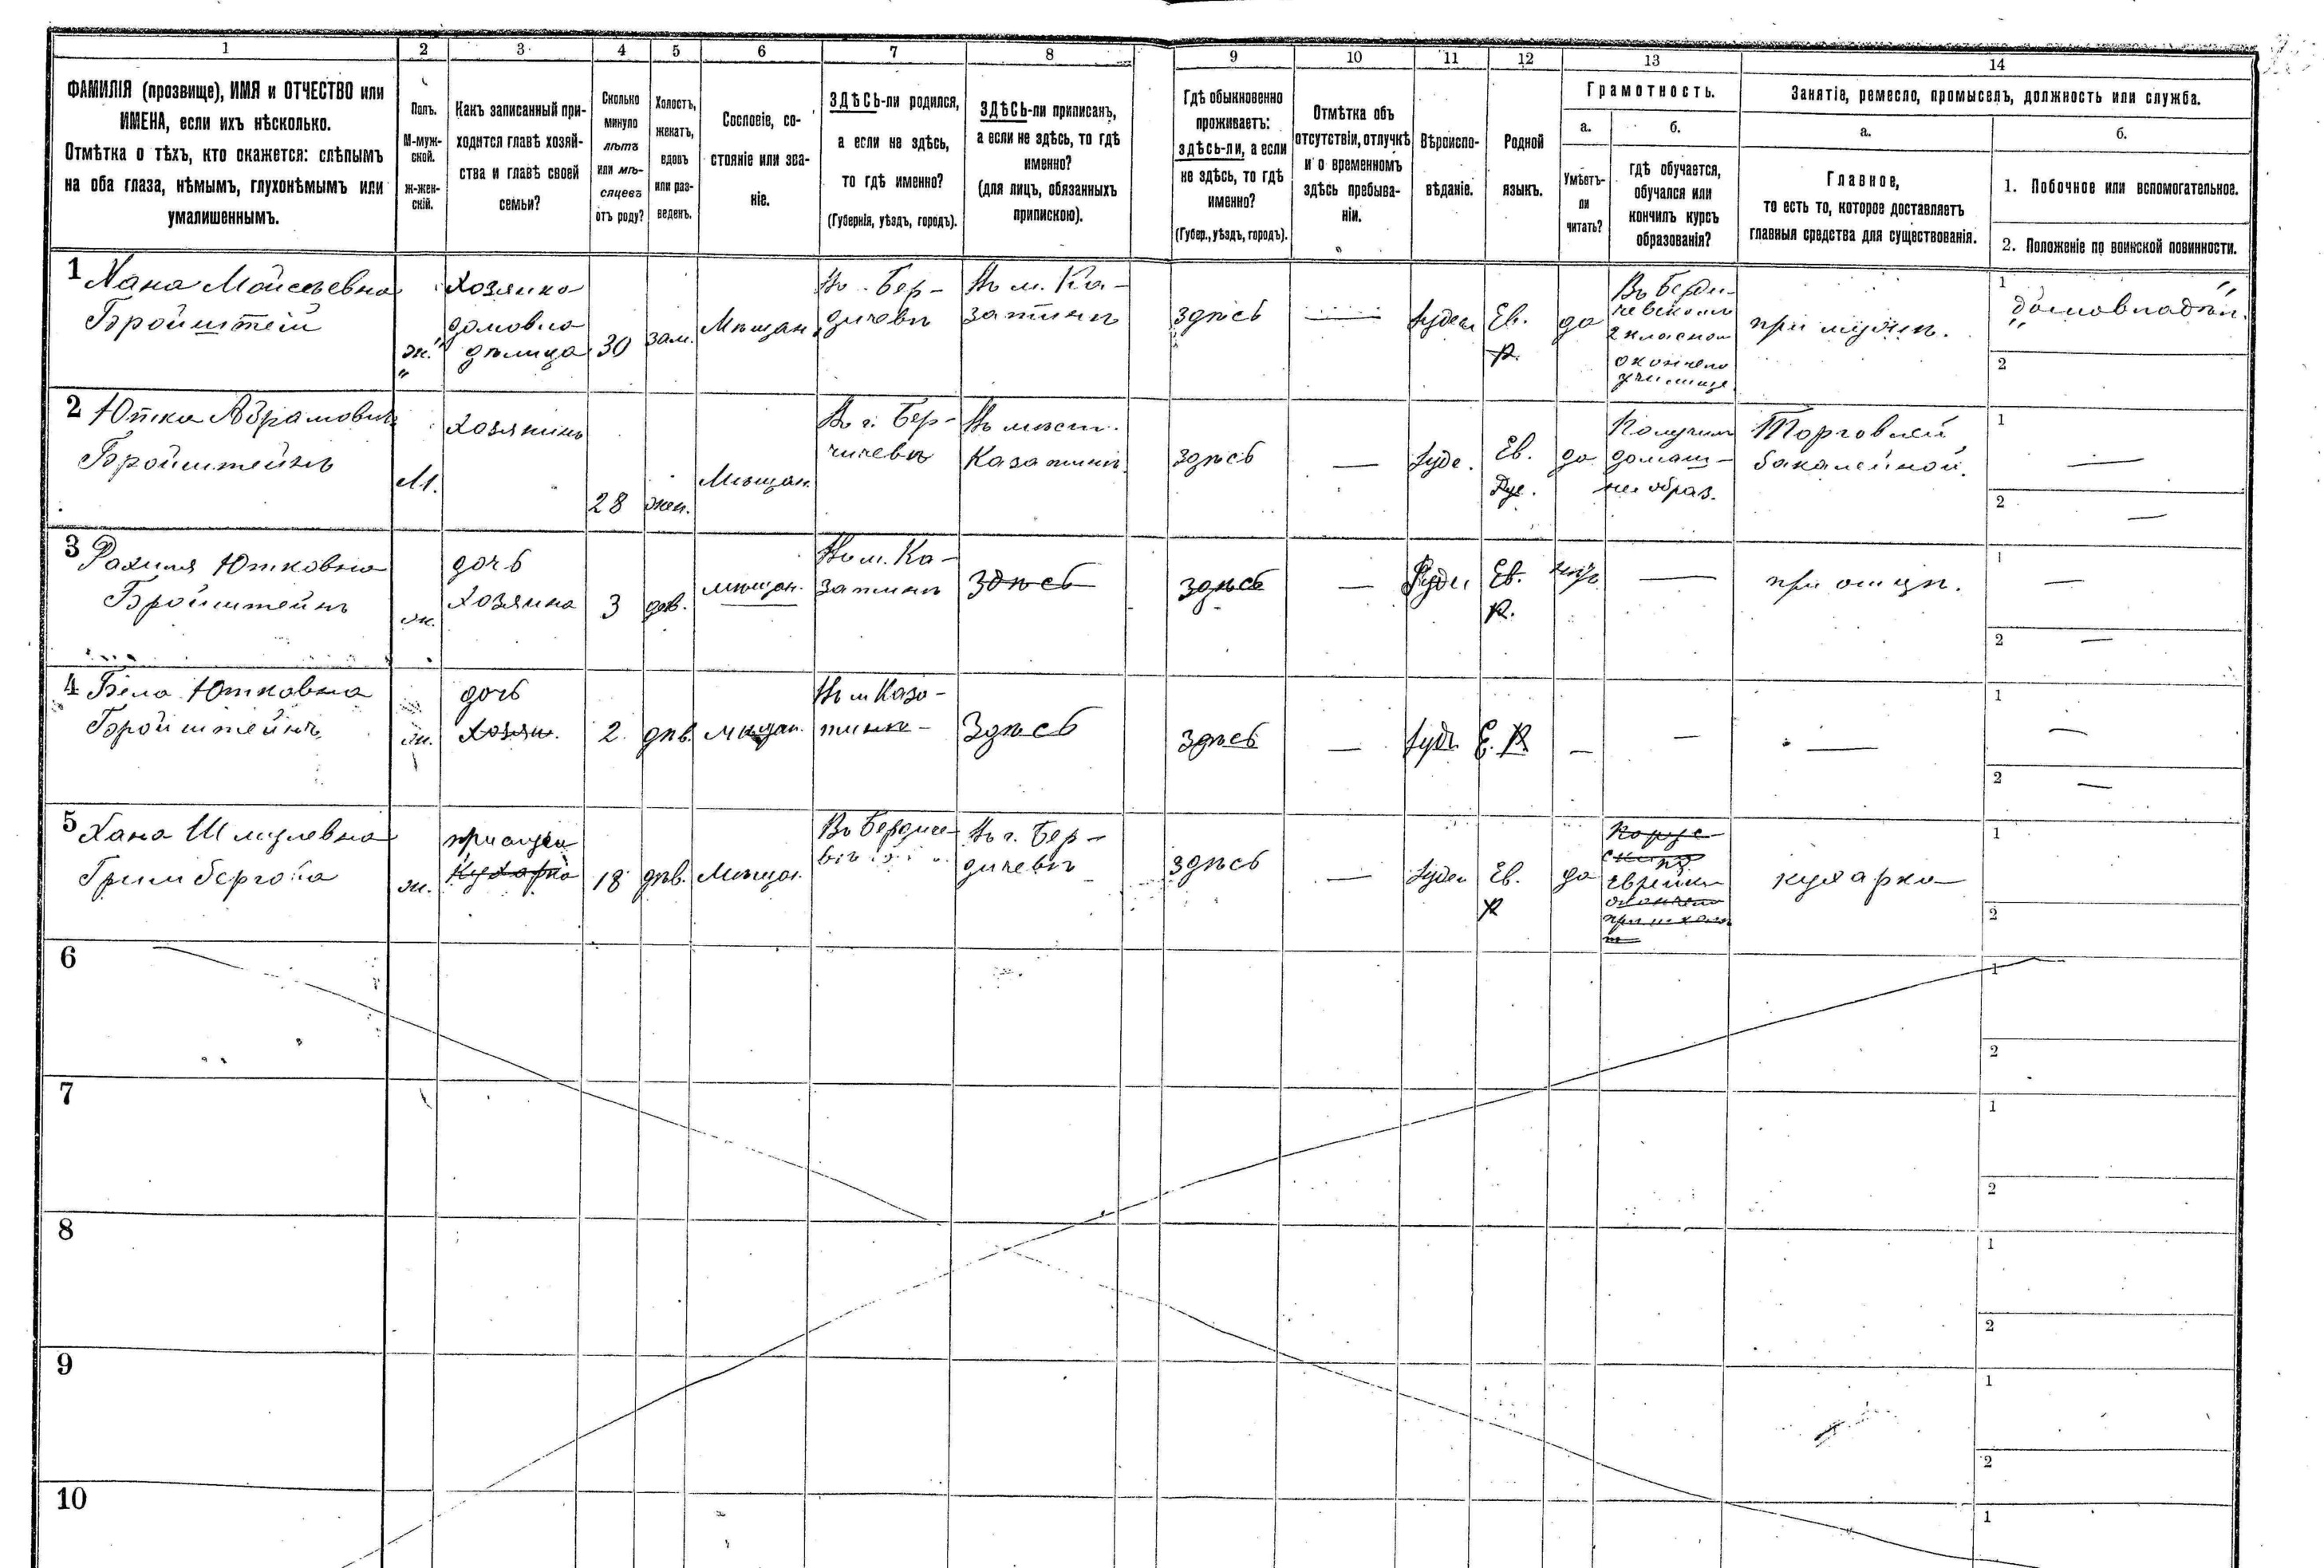 1 2 3 4 5 6 7 8 9 10 11 12 13 14
ФАМИЛІЯ (прозвище), ИМЯ и ОТЧЕСТВО или
ИМЕНА, если ихъ нѣсколько.
Отмѣтка о тѣхъ, кто окажется: слѣпымъ
на оба глаза, нѣмымъ, глухонѣмымъ или
умалишеннымъ.
Полъ.
М-муж-
ской.
ж-жен-
скій.
Какъ записанный при-
ходится главѣ хозяй-
ства и главѣ своей
семьи?
Сколько
минуло
лѣтъ
или мѣ-
сяцевъ
отъ роду?
Холостъ,
женатъ,
вдовъ
или раз-
веденъ.
Сословіе, со-
стояніе или зва-
ніе.
ЗДѢСЬ-ли родился,
а если не здѣсь,
то гдѣ именно?
(Губернія, уѣздъ, городъ).
ЗДѢСЬ-ли приписанъ,
а если не здѣсь, то гдѣ
именно?
(для лицъ, обязанныхъ
припискою).
Гдѣ обыкновенно
проживаетъ:
здѣсь-ли, а если
не здѣсь, то гдѣ
именно?
(Губер., уѣздъ, городъ).
Отмѣтка объ
отсутствіи, отлучкѣ
и о временномъ
здѣсь пребыва-
ніи.
Вѣроиспо-
вѣданіе.
Родной
языкъ.
Грамотность.
а.
Умѣетъ-
ли
читать?
б.
гдѣ обучается,
обучался или
кончилъ курсъ
образованія?
Занятіе, ремесло, промыселъ, должность или служба.
а.
Главное,
то есть то, которое доставляетъ
главныя средства для существованія.
б.
1. Побочное или вспомогательное.
2. Положеніе по воинской повинности.
1 Хана Мойсеевна
Бройштейн
ж.
Хозяйка
домовла
дѣлица
30
зам.
Мѣщан.
Въ Бер-
дичевѣ
Въ м. Ка-
затинѣ
здѣсь
Іудей
Ев.
да
Въ Берди-
чевском
2 класном
окончено
училище
при мужѣ.
1
домовладѣл.
2
2 Ютко Абрамович
Бройштейнъ
М.
Хозяинъ
28
жен.
Мѣщан.
В г. Бер-
дичевѣ
Въ мѣст.
Казатинѣ
здѣсь
—
Іуде.
Ев.
Рус.
да
Получил
домаш-
нее образ.
Торговлей
бакалейной.
1 —
2 —
3 Рахиля Ютковна
Бройштейнъ
ж.
дочь
Хозяина
3
дѣв.
мѣщан.
Въ м. Ка-
затинѣ
Здѣсь
здѣсь
—
Іудеи
Ев.
Р.
—
при отцѣ.
1 —
2 —
4 Бела Ютковна
Бройштейнъ
ж.
дочь
Хозяи.
2
дѣв.
Мѣщан.
Въ м Каза-
тинѣ
Здѣсь
здѣсь
—
Іуд.
Е. Р.
—
—
—
1 —
2 —
5 Хана Шмулевна
Гримберг
ж.
прислуга
Кухарка
18
дѣв.
Мѣщан.
Въ Бердиче-
вѣ
Въ г. Бер-
дичевѣ
здѣсь
—
Іудеи
Ев.
Р
да
Еврейск
кухарка
1
2
6
1
2
7
1
2
8
1
2
9
1
2
10
1